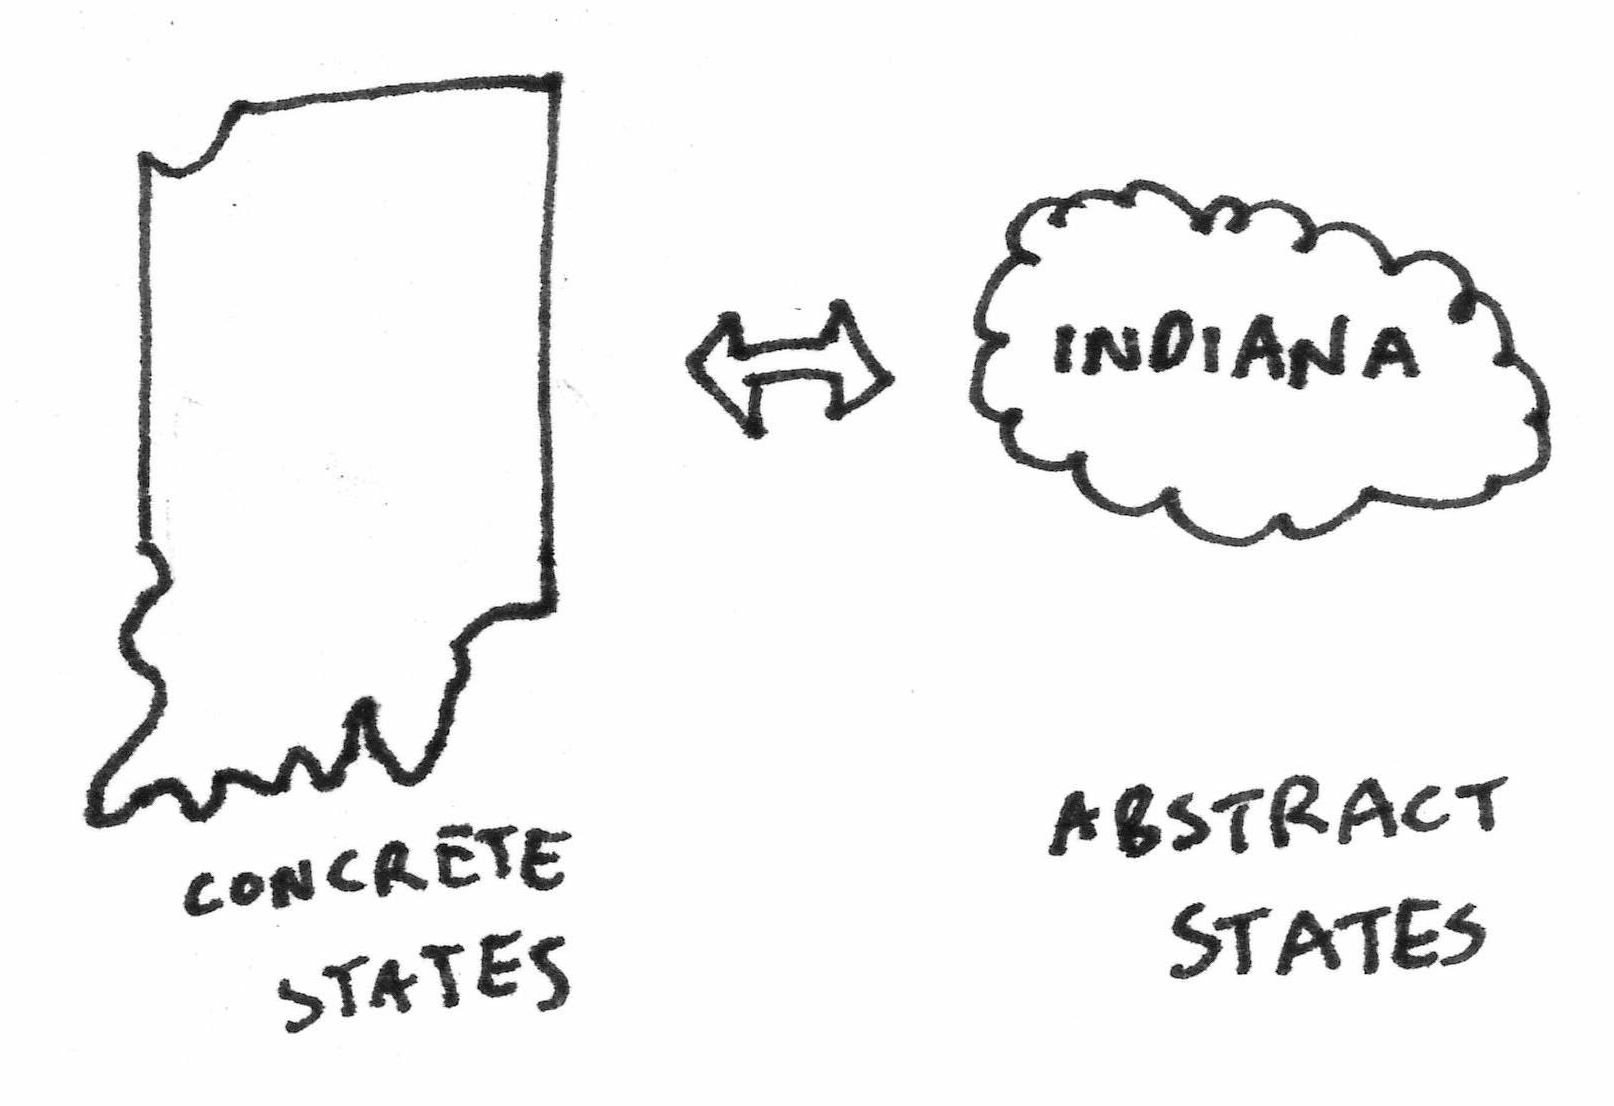 INDIANA
CONCRĒTE
STATES
ABSTRACT
STATES